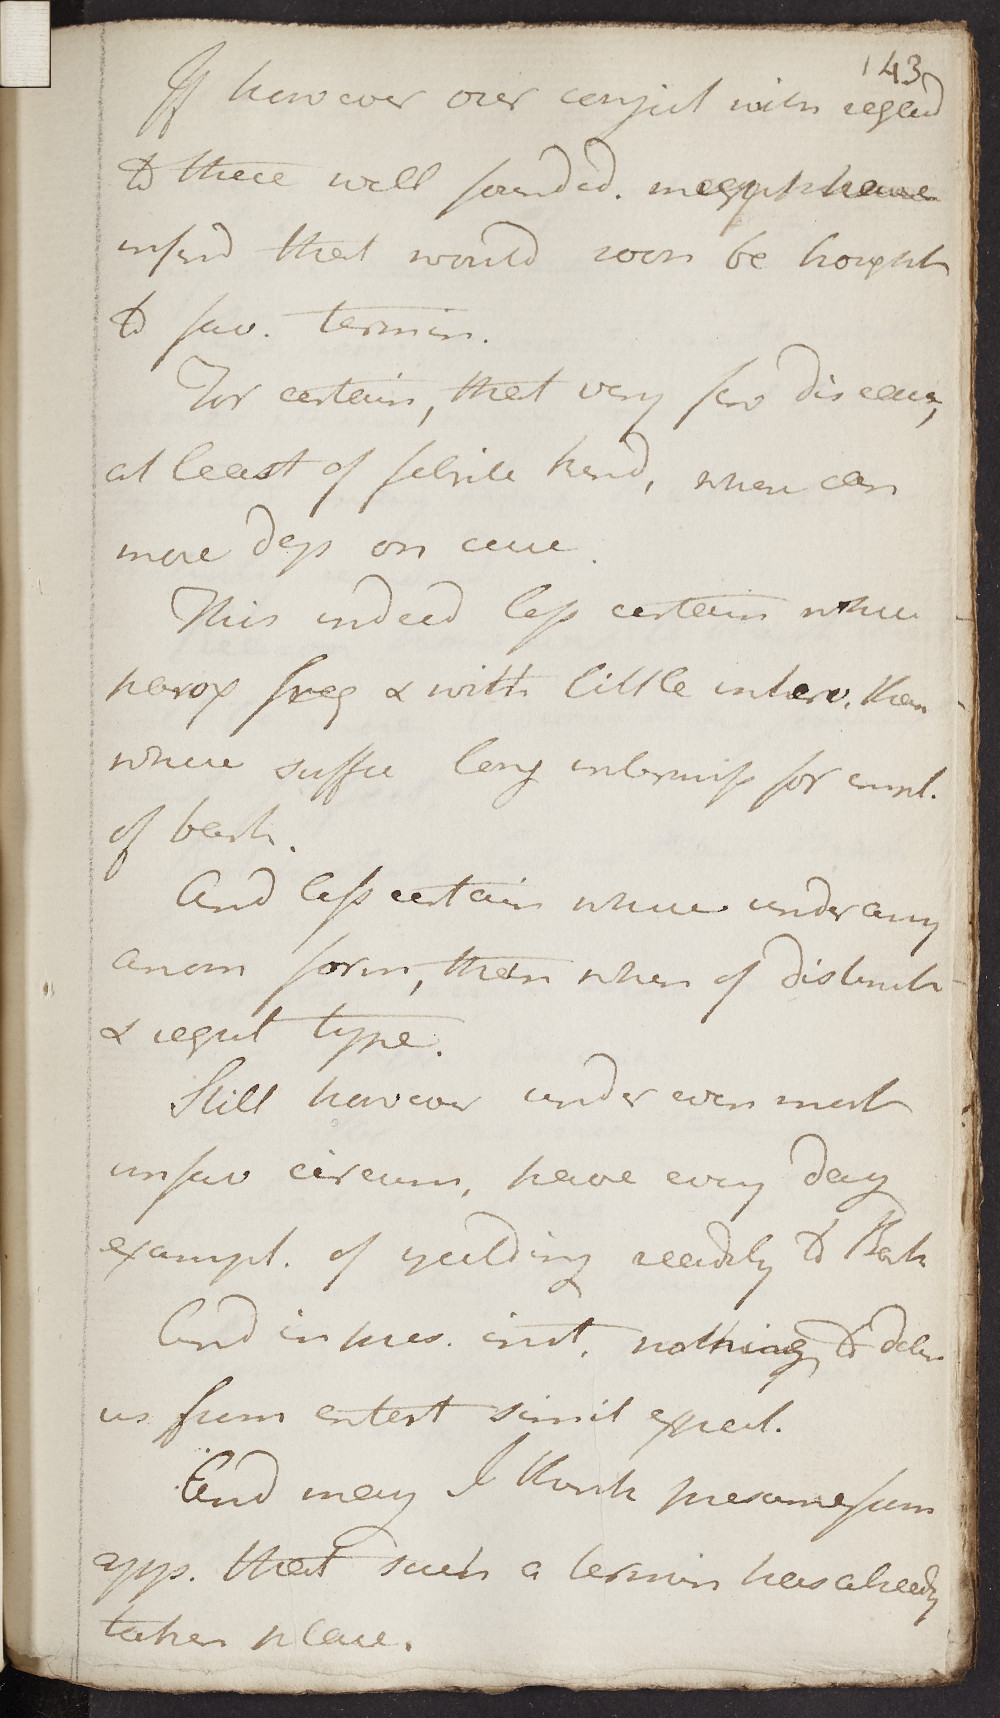 143
If however our conject with regard
to these well founded. might have
inferd that would soon be bought
to fav. termin.
For certain, that very few diseases,
at least of febrile kind, where can
more dep on cure.
This indeed less certain where
parox freq & with little interv. than
where suffic long intermiss for empl.
of bark.
And less certain where under any
anom form, than when of distinct
& regul type.
Still however under even most
unfav circum, have every day
exampl. of yeilding readily to Bark
And in pres. inst. nothing to deter
us from entert simil expect.
And may I think presume from
app. that such a termin has already
taken place.